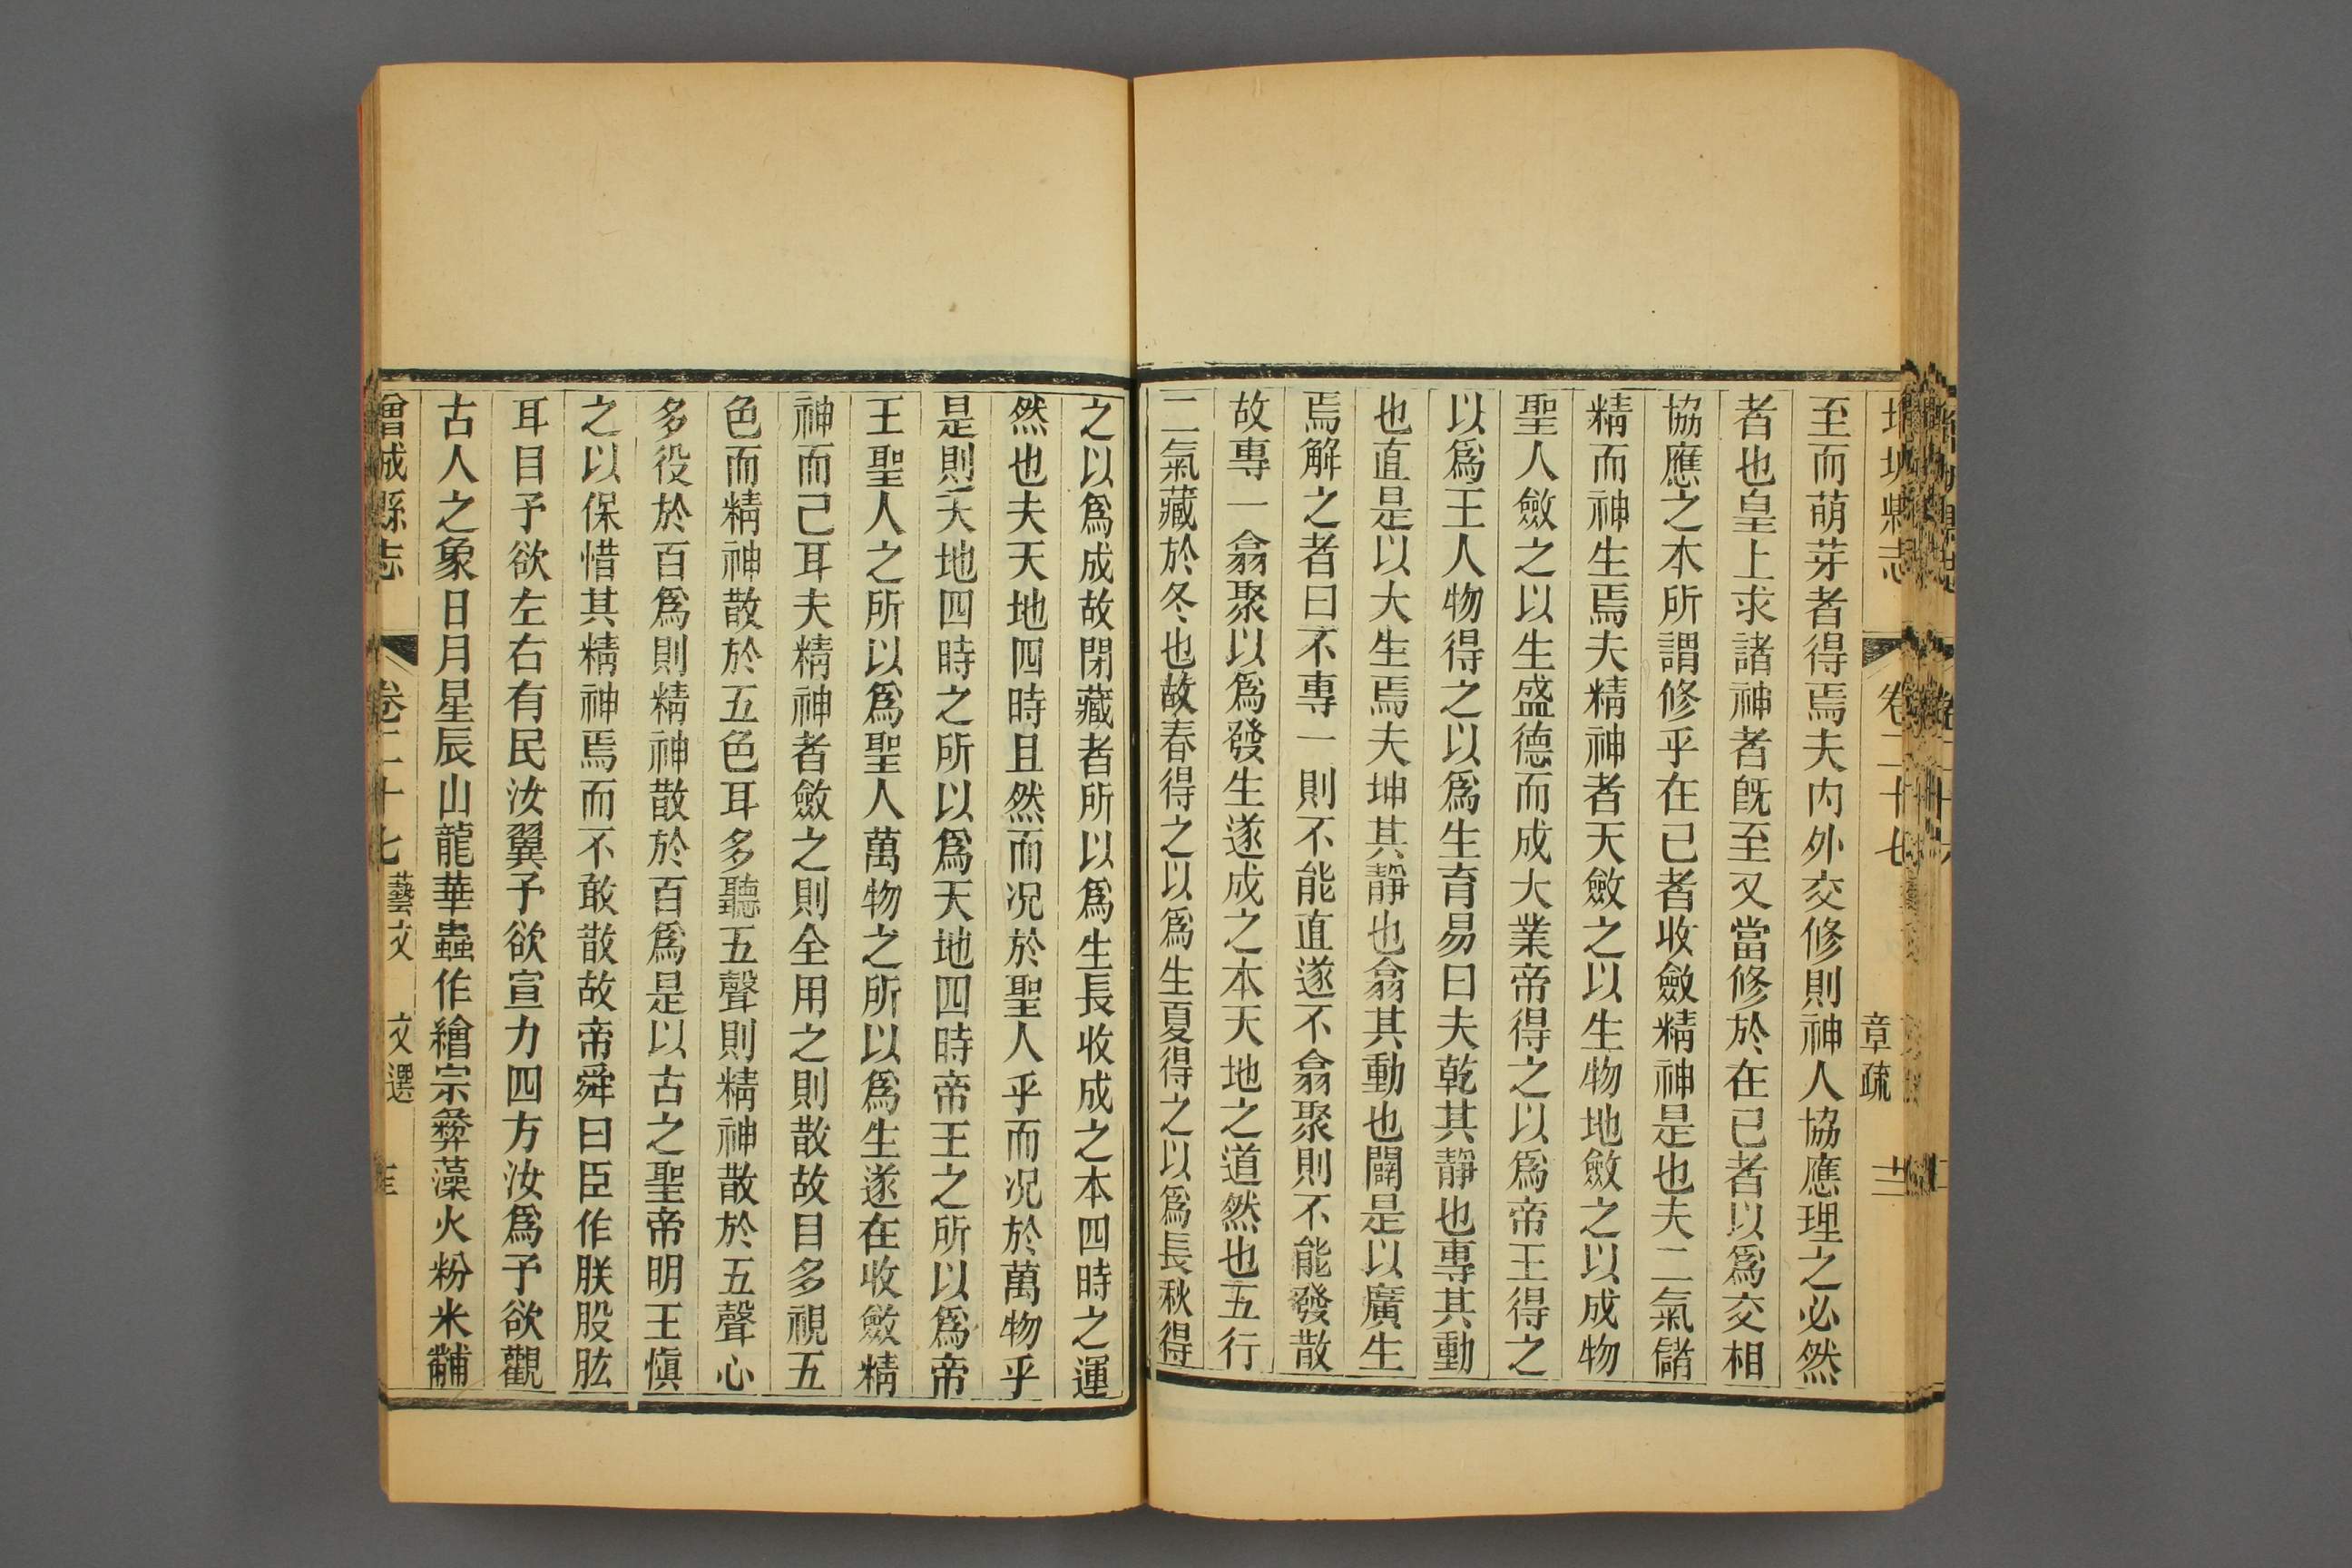 增城縣志 卷二十七 章疏
至而萌芽者得焉夫内外交修則神人協應理之必然
者也皇上求諸神者旣至又當修於在已者以爲交相
協應之本所謂修乎在已者收斂精神是也夫二氣儲
精而神生焉夫精神者天斂之以生物地斂之以成物
聖人斂之以生盛德而成大業帝得之以爲帝王得之
以爲王人物得之以爲生育易曰夫乾其靜也專其動
也直是以大生焉夫坤其靜也翕其動也闢是以廣生
焉解之者曰不專一則不能直遂不翕聚則不能發散
故專一翕聚以爲發生遂成之本天地之道然也五行
二氣藏於冬也故春得之以爲生夏得之以爲長秋得
之以爲成故閉藏者所以爲生長收成之本四時之運
然也夫天地四時且然而况於聖人乎而况於萬物乎
是則天地四時之所以爲天地四時帝王之所以爲帝
王聖人之所以爲聖人萬物之所以爲生遂在收斂精
神而已耳夫精神者斂之則全用之則散故目多視五
色而精神散於五色耳多聽五聲則精神散於五聲心
多役於百爲則精神散於百爲是以古之聖帝明王愼
之以保惜其精神焉而不敢散故帝舜曰臣作朕股肱
耳目予欲左右有民汝翼予欲宣力四方汝爲予欲觀
古人之象日月星辰山龍華蟲作繪宗彝藻火粉米黼
曾城縣志 卷二十七 藝文 文選